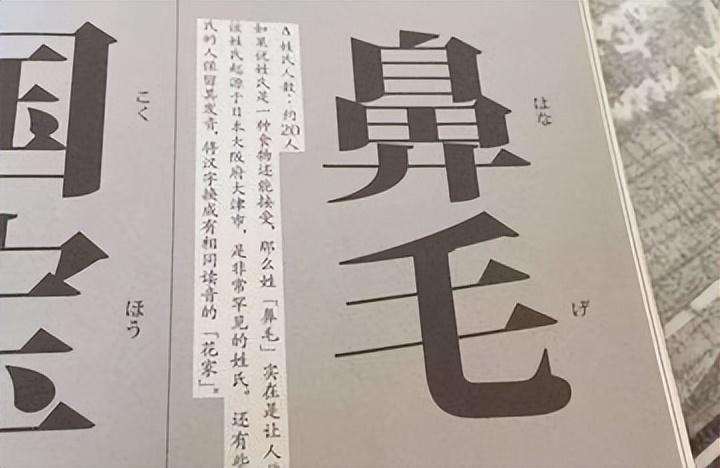 はな
げ
鼻毛
△姓氏人数：约20人
如果说姓氏是一种食物还能接受，那么姓「鼻毛」实在是让人
该姓氏起源于日本大阪府大津市，是非常罕见的姓氏。还有些
氏的人保留其发音，将汉字换成有相同读音的「花家」。
こく
ほう
国宝